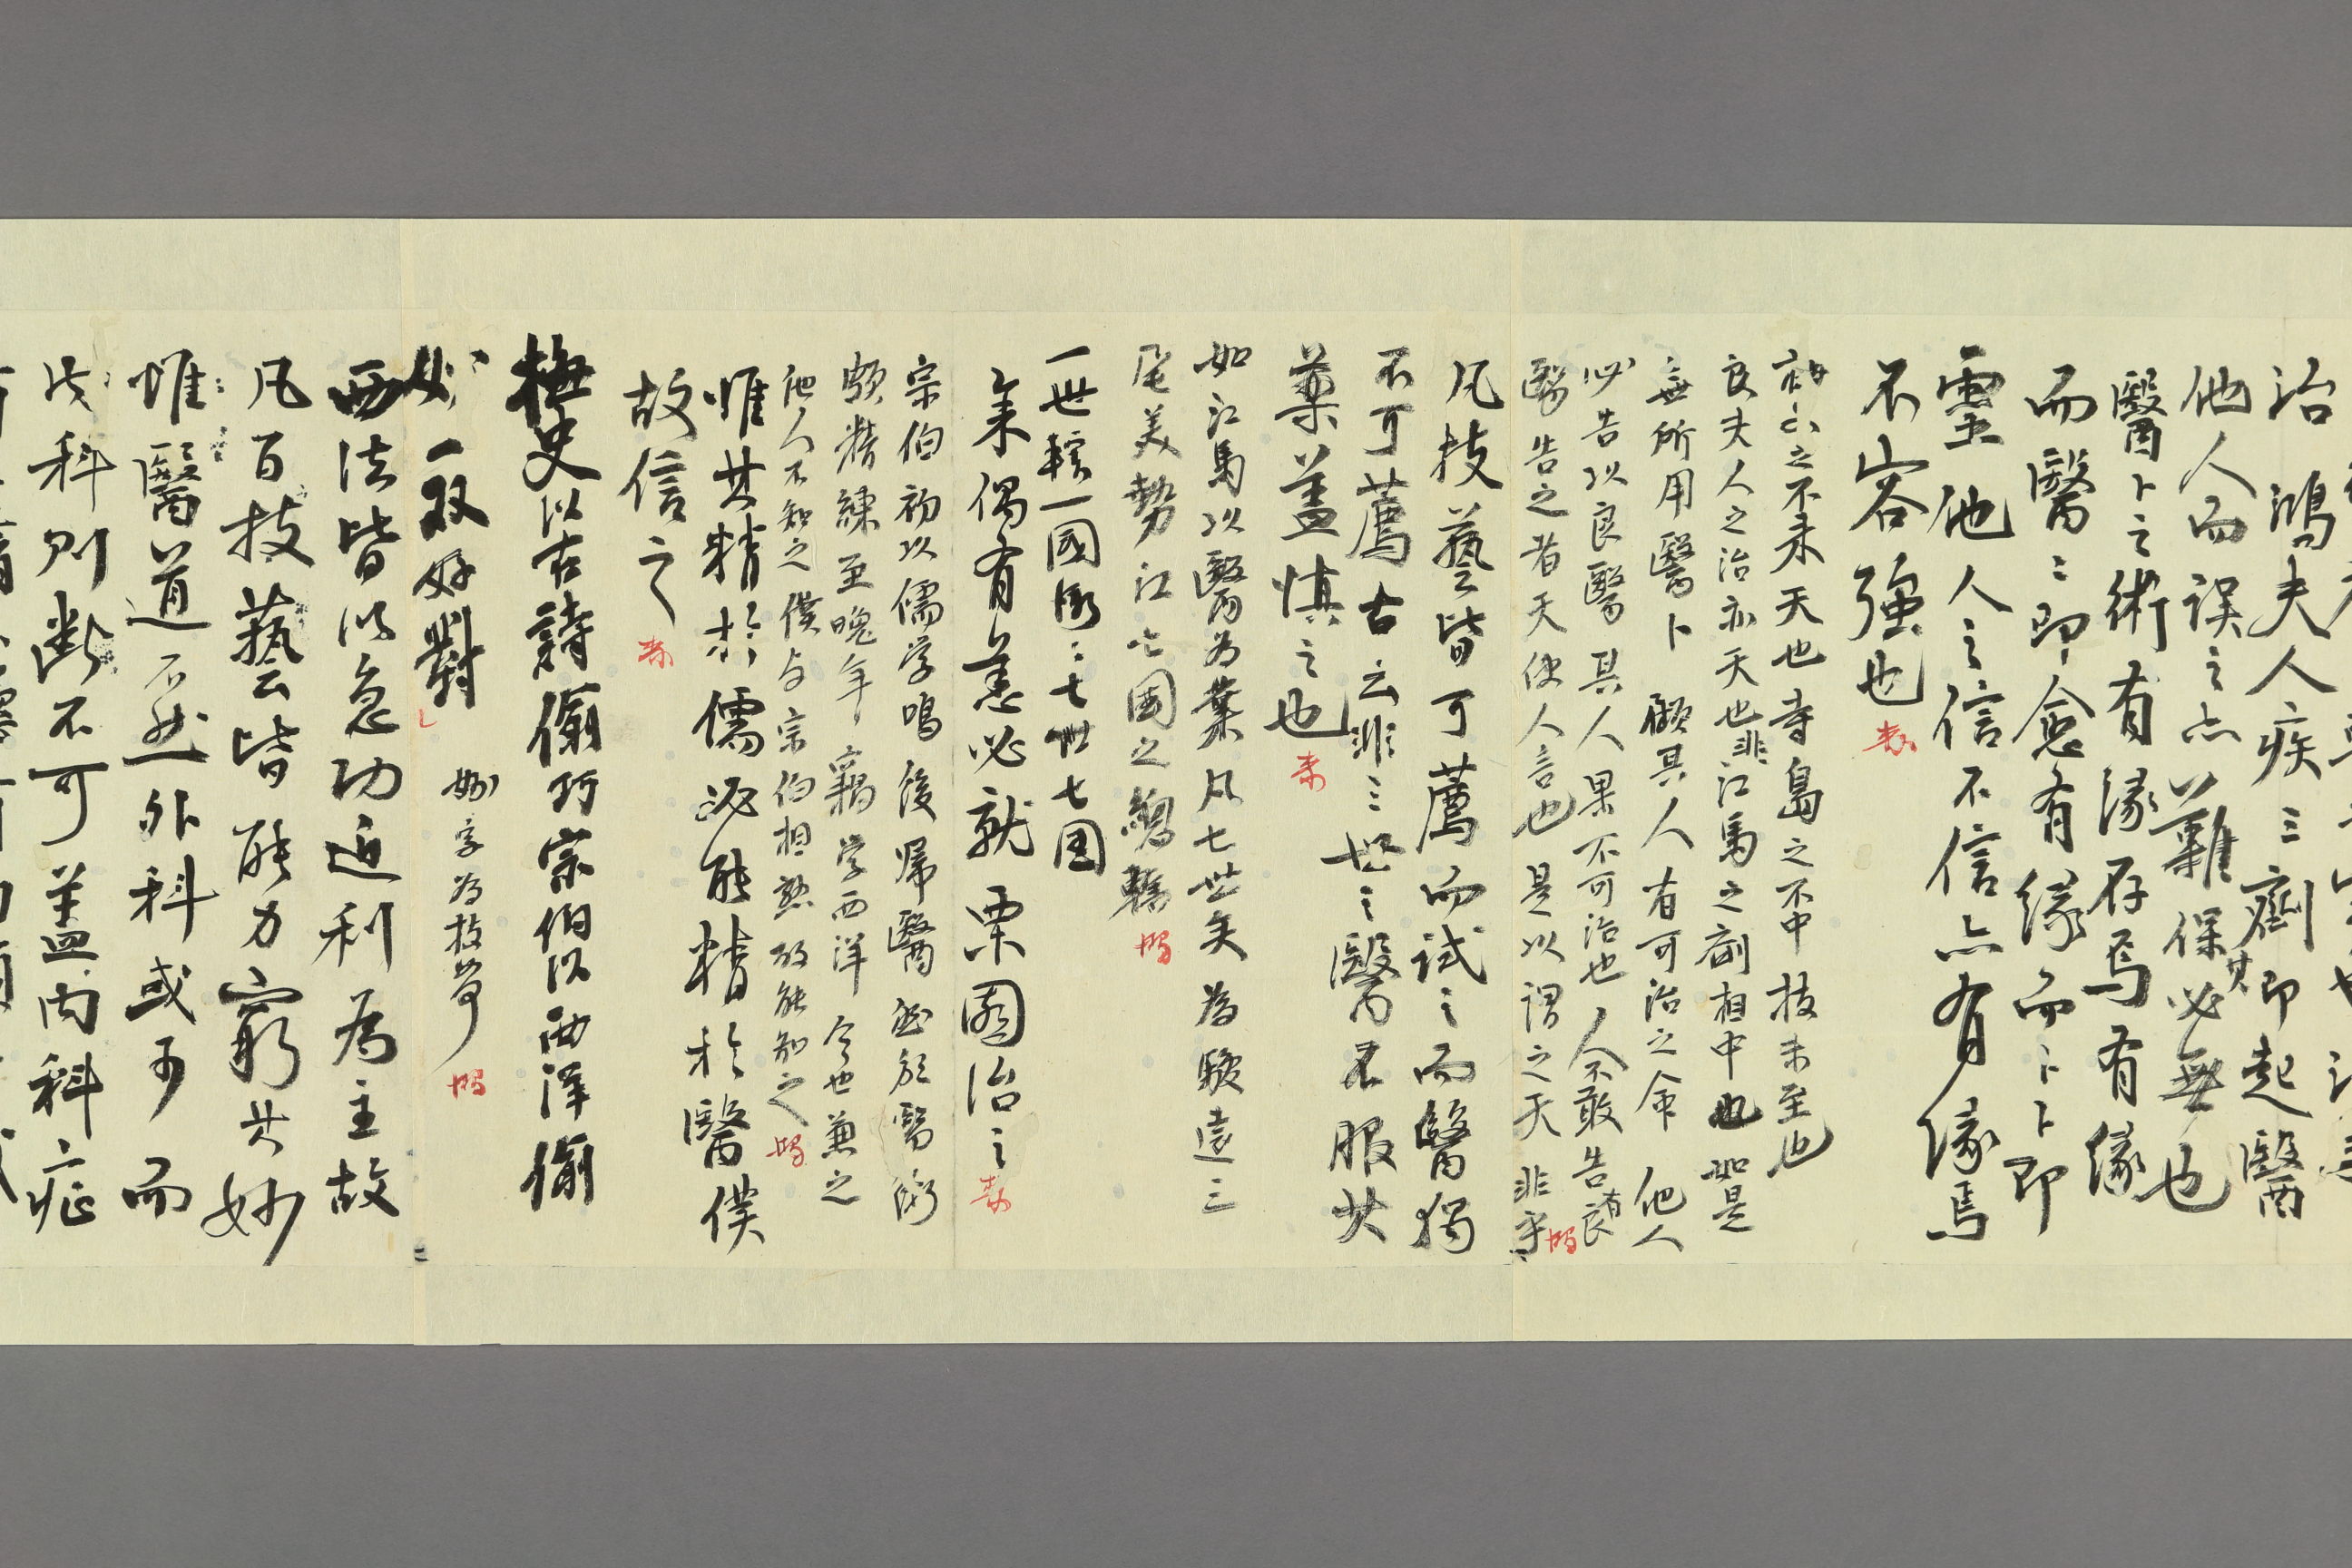 治鴻夫人疾三劑其即起醫
他人而误之亦難保必無也
醫卜之術有緣存焉有緣
而醫〻即愈有緣而卜〻即
靈他人之信不信亦有緣焉
不容強也
之不来天也寺島之不中技未至也
良夫人之治亦天也非江馬之劑相中也如是
無所用醫卜願其人有可治之命他人
必告以良醫其人果不可治也人不敢告有良
醫告之者天使人言也是以謂之天非乎
凡技藝皆可薦而試之而醫獨
不可薦古云非三世之醫不服其
藥蓋慎之也
如江馬以醫為業凡七世矣為驗遠三
尾美勢江七國之
一世轄一國為七世七国
矣偶有恙必就栗園治之
宗伯初以儒学鳴後帰醫於醫術
頗精練至晚年竊学西洋今也兼之
他人不知之僕与宗伯相熟故能知之
惟其精於儒必能精於醫僕
故信之
梅史以古詩偷巧宗伯以西洋偷
妙一双好對
妙字為
西法皆以急功近利為主故
凡百技藝皆能力窮其妙
惟醫道不然外科或可而
内科則斷不可蓋内科症